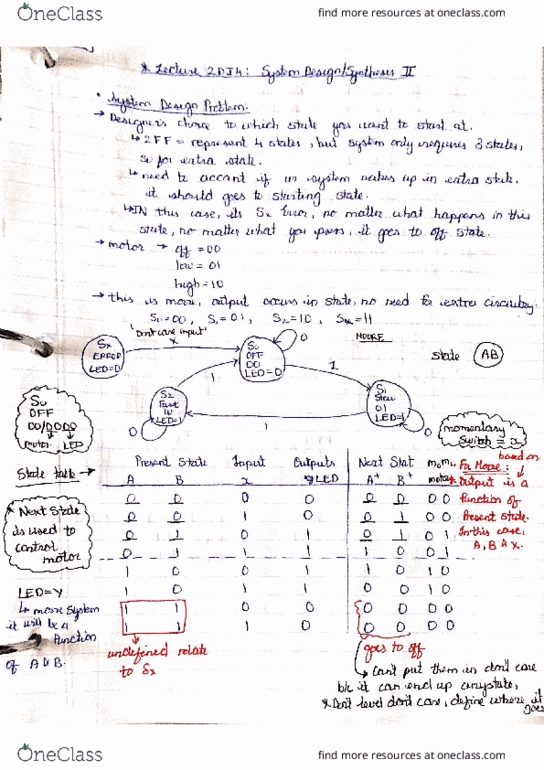 OneClass
find more resources at oneclass.com
* Lecture 2DI4: System Design/Synthesis II
• System Design Problem:
→ Designer's choice to which state you want to start at.
↳ 2FF = represent 4 states, but system only requires 3 states,
so for extra state.
↳ need to account if system wakes up in extra state,
it should goes to starting state.
↳ IN this case, its Sx Error, no matter what happens in this
state, no matter what you press, it goes to off state.
→ motor → off = 00
low = 01
high = 10
→ this is moore, output occurs in state, no need for extra circuitry.
S0 = 00, S1 = 01, S2 = 10, Sx = 11
"Don't care input"
x
MOORE
State AB
Sx
ERROR
LED=0
S0
OFF
00
LED=0
0
1
1
S2
Fast
10
LED=1
S1
Slow
01
LED=1
1
0
0
S0
OFF
00/00 00
motor LED
momentary
switch = x
State table →
Present State Input Outputs Next Stat
A B x y LED A+ B+ motor
0 0 0 0 0 0 0 0
0 0 1 0 0 1 0 0
0 1 0 1 0 1 0 1
0 1 1 1 1 0 0 1
1 0 0 1 1 0 1 0
1 0 1 1 0 0 1 0
1 1 0 0 0 0 0 0
1 1 1 0 0 0 0 0
based on
For Moore:
Output is a
function of
Present state.
In this case,
A, B & x.
* Next State
is used to
control
motor
LED=Y
↳ moore system
it will be a
function
of A & B.
undefined relate
to Sx
goes to off
↳ can't put them in don't care
b/c it can end up anystate,
* Don't level don't care, define where it
goes
OneClass
find more resources at oneclass.com